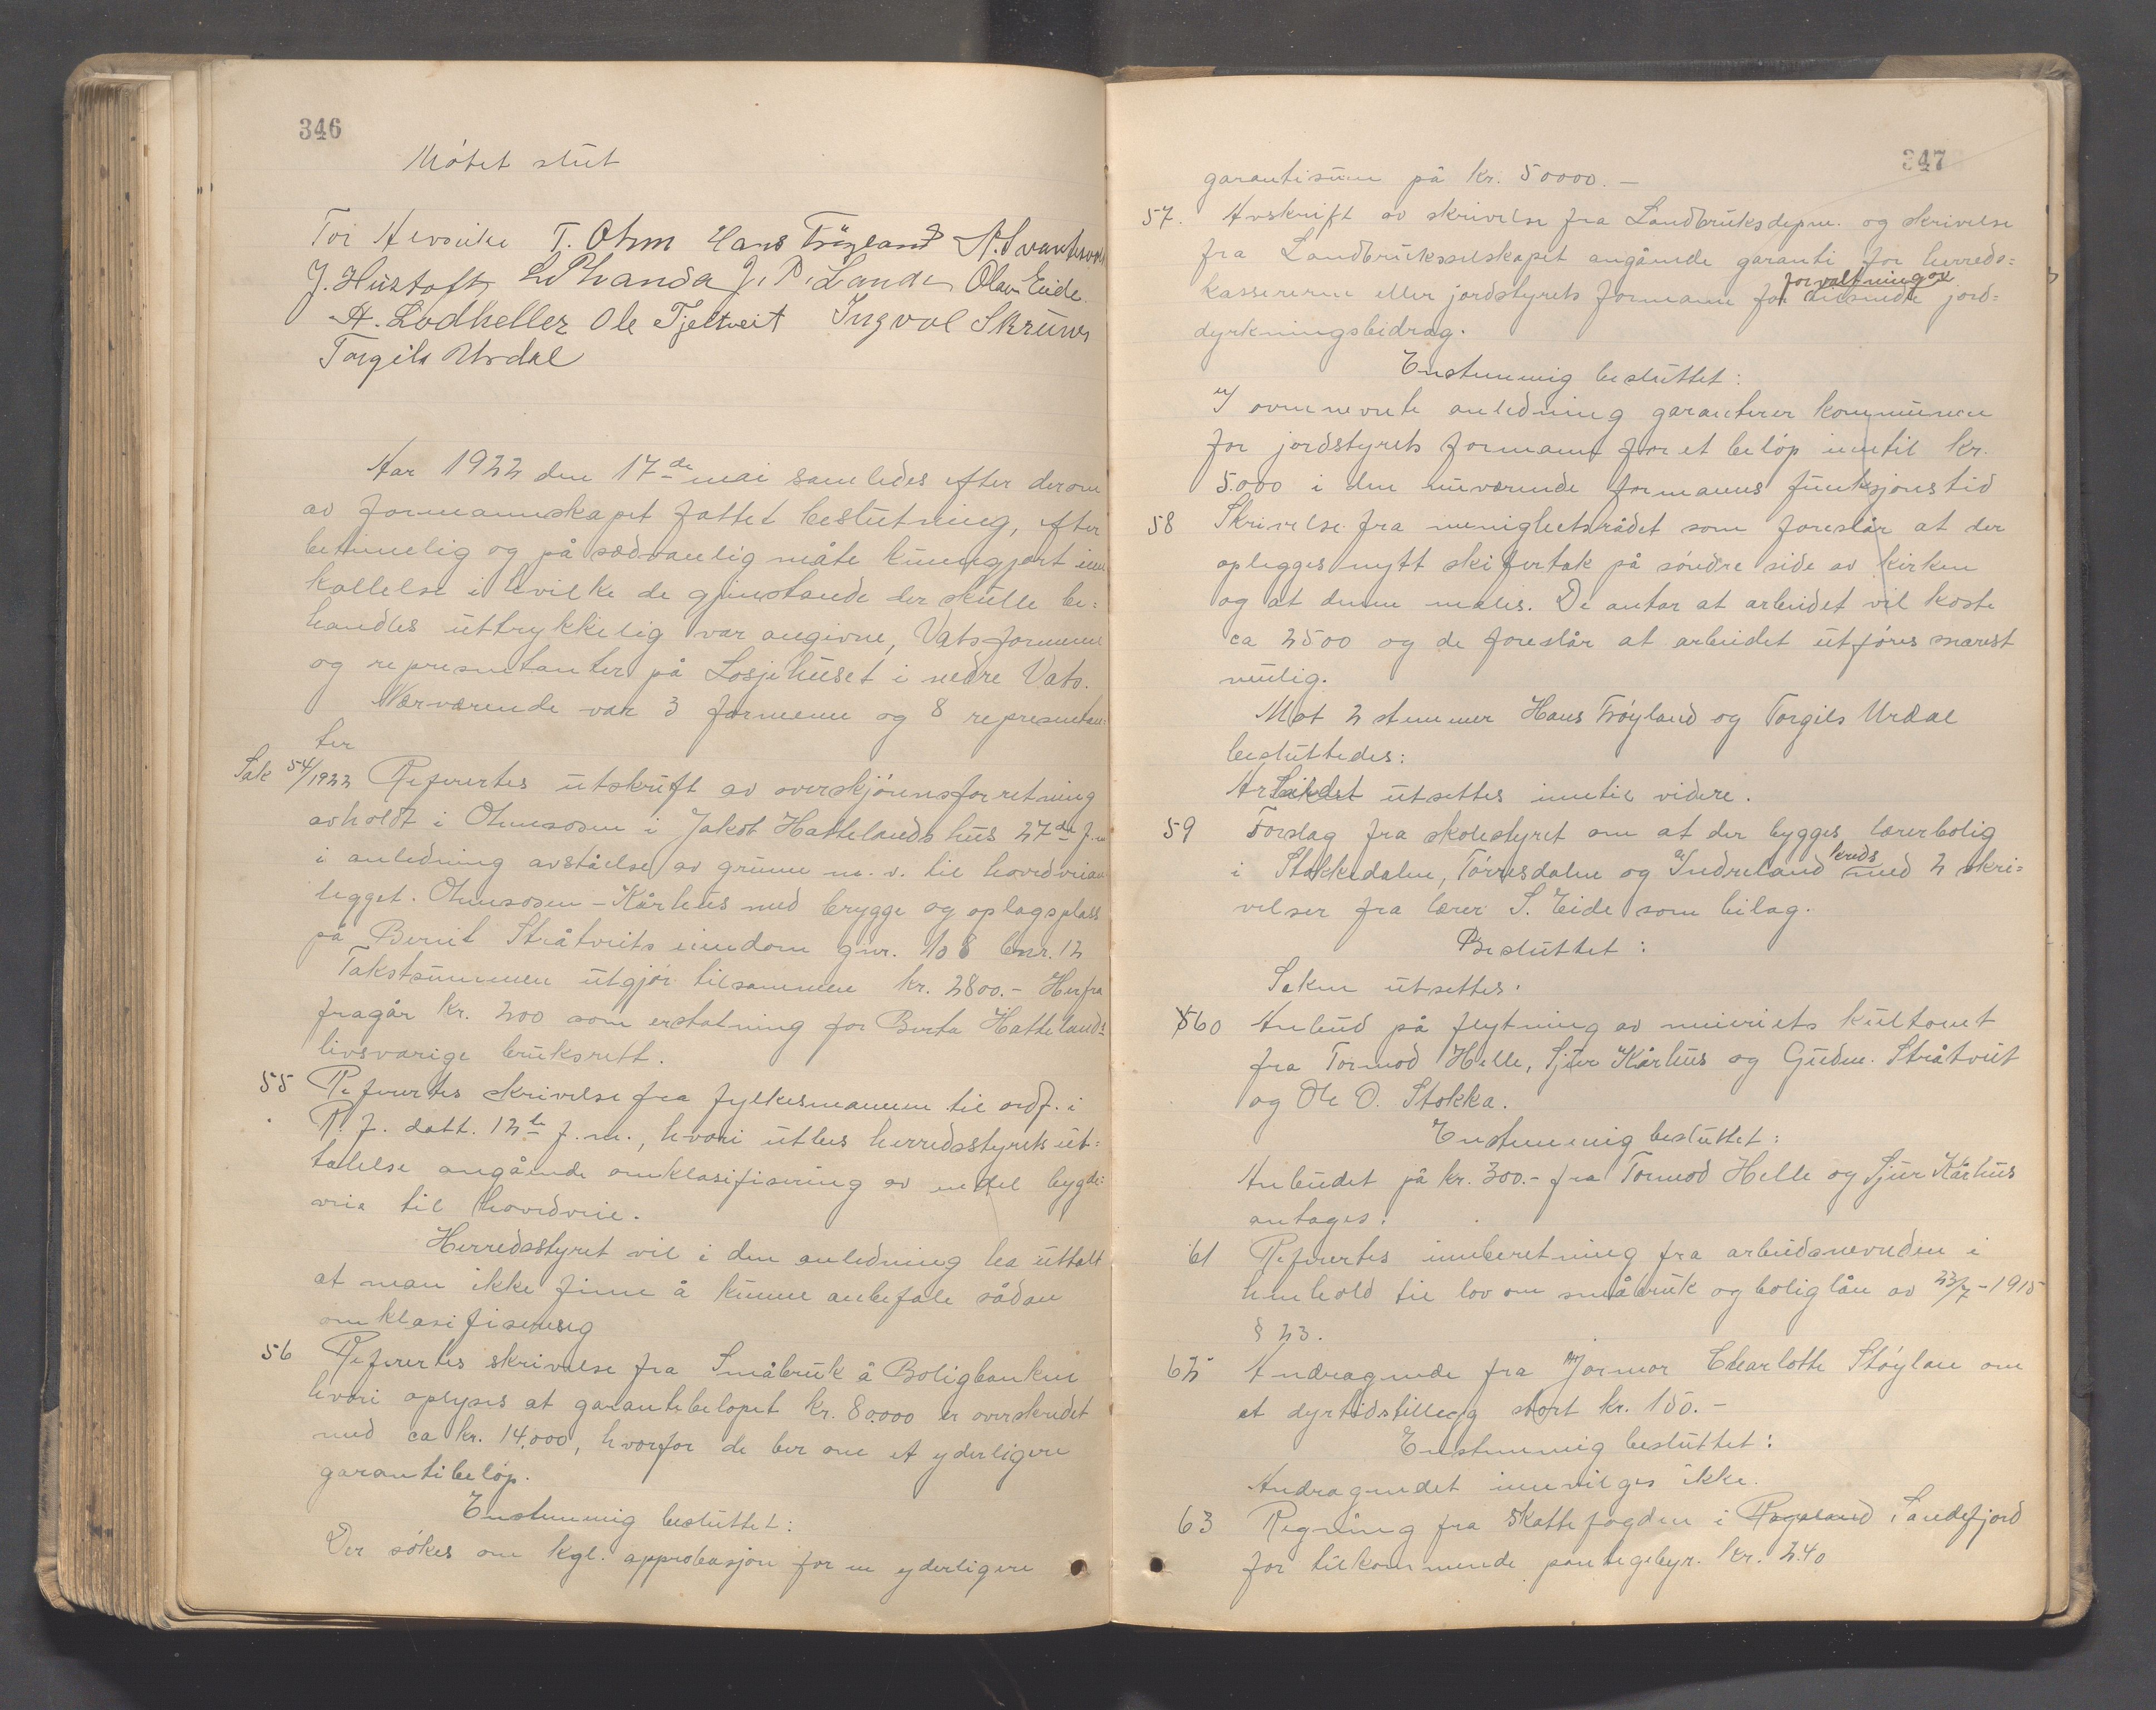 346
Møtet slut
T. Ohm Hans Frøyland
J. Hustoft J. P. Lande Olav Eide
A. Lodheller Ole Tjeltveit Ingvol
Torgils Urdal
Aar 1922 den 17de mai samledes efter derom
av formannskapet fattet beslutning, efter
betimelig og på sædvanlig måte kunngjort inn
kallelse i hvilke de gjenstande der skulle be=
handles uttrykkelig var angivne, Vats formenn
og representanter på Losjehuset i nedre Vats.
Nærværende var 3 formenn og 8 representan=
ter
Sak 54/1922 Refertes utskrift av overskjønnsforretning
avholdt i Ohmsosen i Jakob Hattelands hus 27de f.m
i anledning avståelse av grunn m.v. til hovedveian
legget. Ohmsosen - Kårhus med brygge og oplagsplass
på Berit Stråtveits eiendom gnr. 108 bnr. 12
Takstsummen utgjør tilsammen kr. 2800.- Herfra
fragår kr. 200 som erstatning for Berta Hattelands
livsvarige bruksrett.
55 Refertes skrivelse fra fylkesmannen til ordf. i
R. f. datt. 12te f.m., hvori utbes herredsstyrets ut=
talelse angående omklasifisering av endel bygde=
veie til hovedveie.
Herredsstyret vil i den anledning ha uttalt
at man ikke finne å kunne anbefale sådan
omklasifisering
56 Refertes skrivelse fra Småbruk å Boligbanken
hvori oplyses at garantibeløpet kr. 80000 er overskredet
med ca kr. 14.000, hvorfor de ber om et yderligere
garantibeløp.
Enstemmig besluttet:
Der søkes om kgl. approbasjon for en yderligere
347
garantisum på kr. 50000.-
57. Avskrift av skrivelse fra Landbruksdepm. og skrivelse
fra Landbruksselskapet angående garanti for herreds=
forvaltning av
kassereren eller jordstyrets formann for ansendte jord=
dyrkningsbidrag.
Enstemmig besluttet:
I ovennevnte anledning garanterer kommunen
for jordstyrets formann for et beløp inntil kr.
5.000 i den nuværende formanns funksjonstid
58 Skrivelse fra menighetsrådet som foreslår at der
oplegges nytt skifertak på søndre side av kirken
og at denne males. De antar at arbeidet vil koste
ca 2500 og de foreslår at arbeidet utføres snarest
mulig.
Mot 2 stemmer Hans Frøyland og Torgils Urdal
besluttedes:
Arbeidet utsettes inntil videre.
59 Forslag fra skolestyret om at der bygges lærerbolig
kreds
i Stokkedalen, Tørresdalen og Indreland med 2 skri=
velser fra lærer S. Eide som bilag.
Besluttet:
Saken utsettes.
60 Anbud på flytning av meieriets kultomt
fra Tormod Helle, Sjur Kårhus og Gudm. Stråtveit
og Ole O. Stokka.
Enstemmig besluttet:
Anbudet på kr. 300.- fra Tormod Helle og Sjur Kårhus
antages.
61 Refertes innberetning fra arbeidsnevnden i
henhold til lov om småbruk og boliglån av 23/7-1915
§ 23.
62 Andragende fra Jormor Charlotte Støylen om
et dyrtidstillegg stort kr. 150.-
Enstemmig besluttet:
Andragendet innvilges ikke.
63 Regning fra Skattefogden i Rogaland Sandefjord
for tilkommende pantegebyr. kr. 2.40